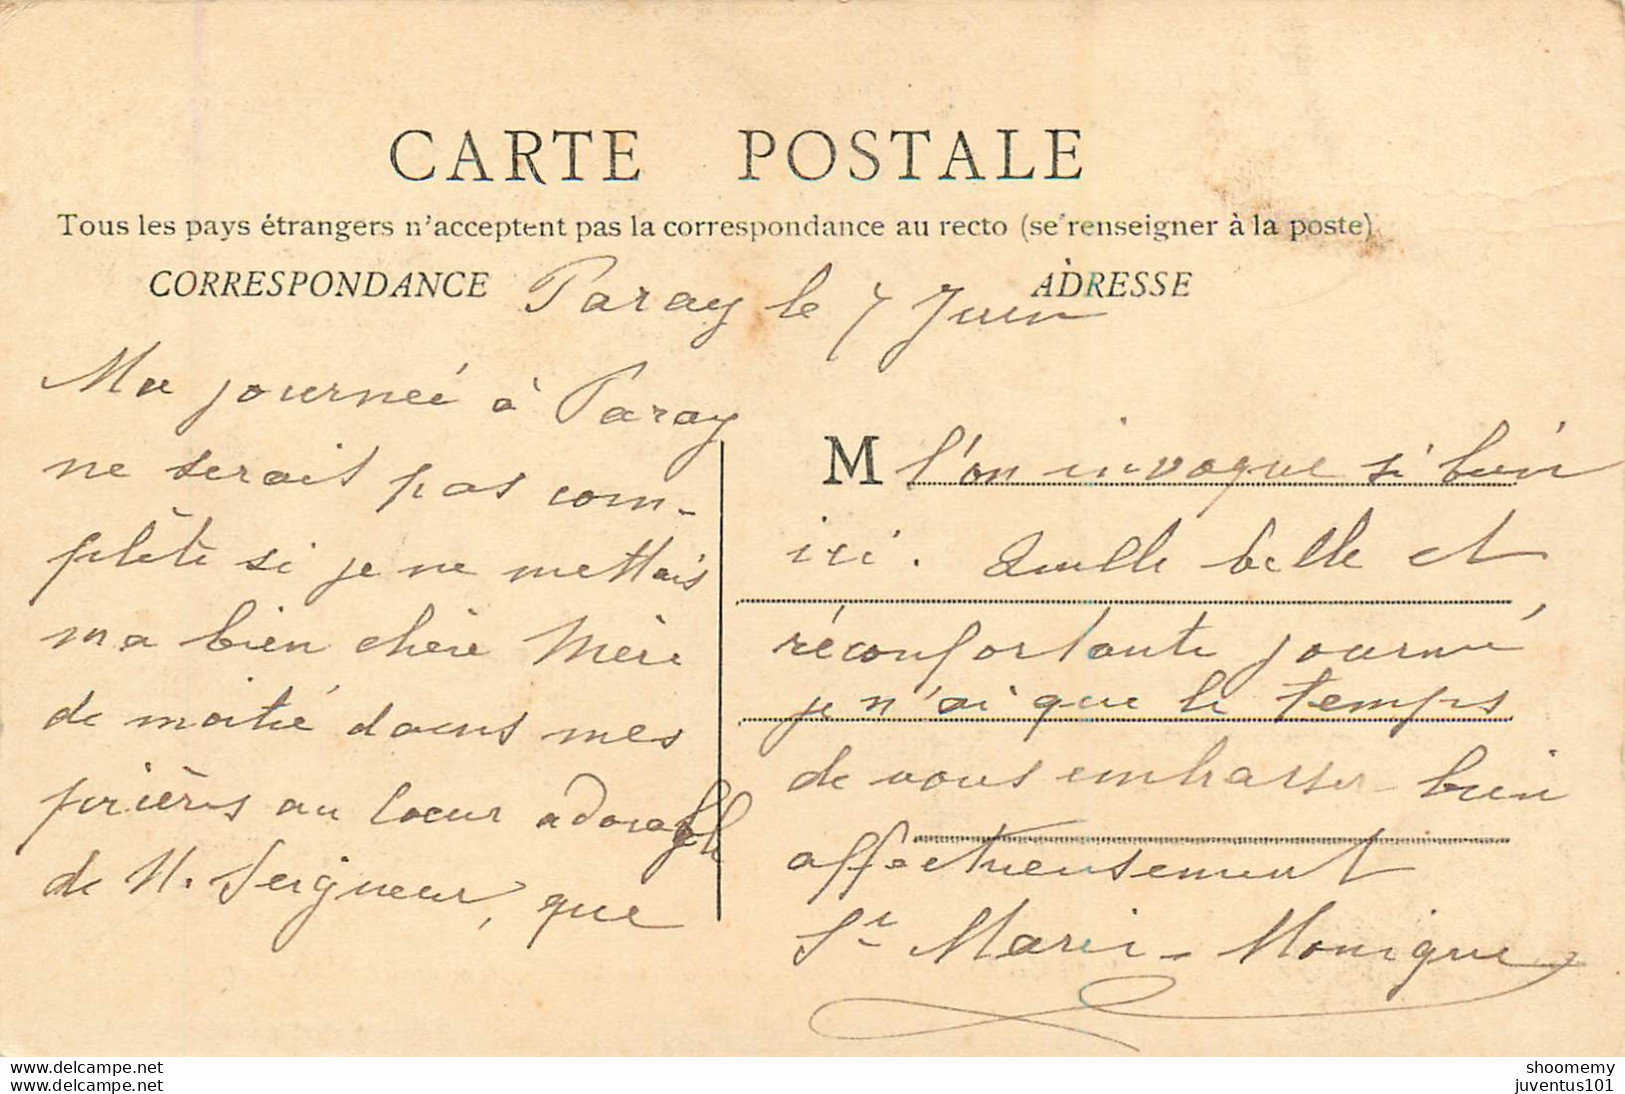 CARTE POSTALE
Tous les pays étrangers n'acceptent pas la correspondance au recto (se renseigner à la poste)
CORRESPONDANCE
ADRESSE
Paray le 7 Juin
Ma journeé à Paray
ne serait pas com-
plète si je ne mettais
ma bien chère Mère
de moitié dans mes
prières au Coeur adorable
de N. Seigneur, que
M
l'on invoque si bien
ici. Quelle belle et
réconfortante journeé
je n'ai que le temps
de vous embrasser bien
affectueusement
Sr Marie-Monique
www.delcampe.net
www.delcampe.net
shoomemy
juventus101